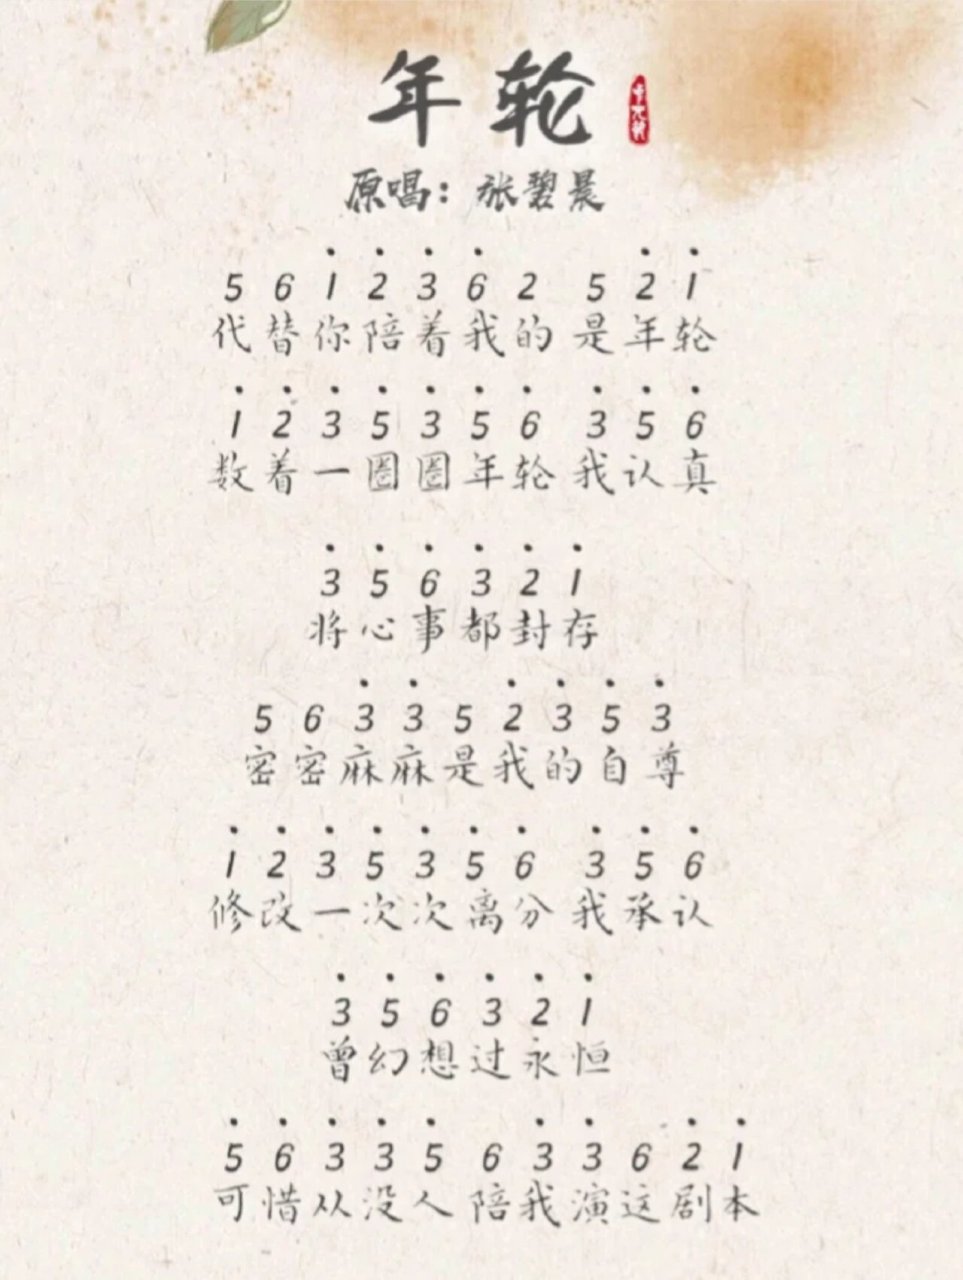 年轮
原唱：张碧晨
5 6 1̇ 2̇ 3̇ 6̇ 2 5 2̇ 1̇
代替你陪着我的 是年轮
1̇ 2̇ 3̇ 5̇ 3̇ 5̇ 6̇ 3̇ 5̇ 6̇
数着一圈圈年轮 我认真
3̇ 5̇ 6̇ 3̇ 2̇ 1̇
将心事都封存
5 6 3̇ 3̇ 5 2̇ 3̇ 5̇ 3̇
密密麻麻是我的自尊
1̇ 2̇ 3̇ 5̇ 3̇ 5̇ 6̇ 3̇ 5̇ 6̇
修改一次次离分 我承认
3̇ 5̇ 6̇ 3̇ 2̇ 1̇
曾幻想过永恒
5̇ 6̇ 3̇ 3̇ 5̇ 6 3̇ 3̇ 6 2̇ 1̇
可惜从没人 陪我演这剧本